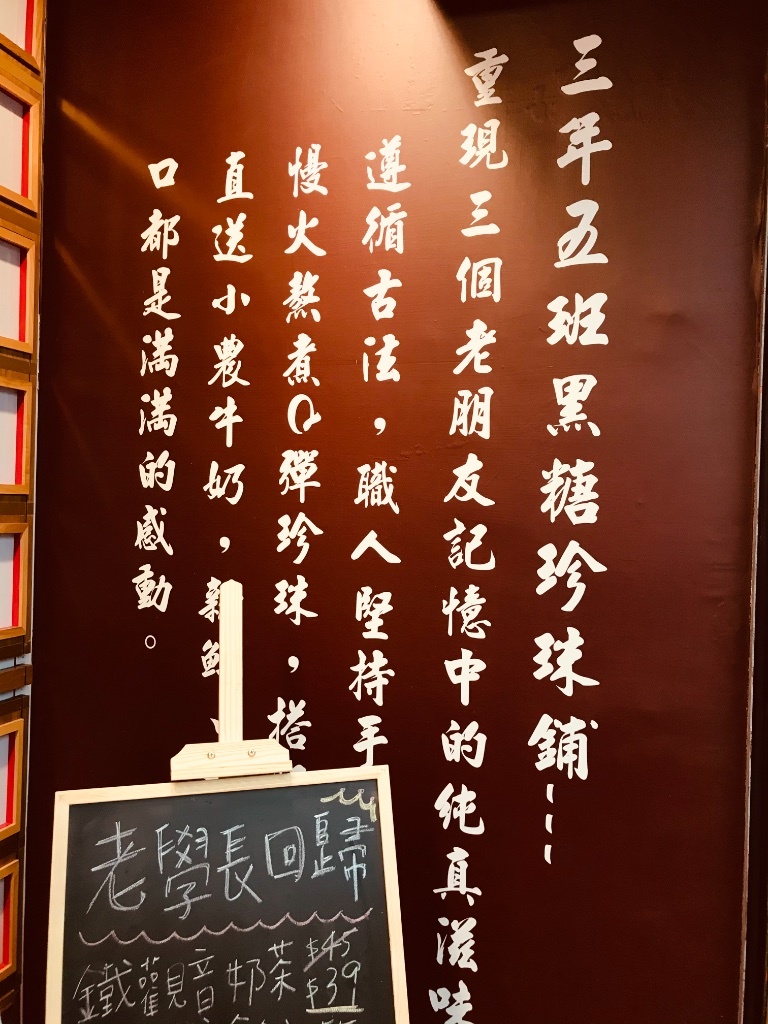 三年五班黑糖珍珠鋪---
重現三個老朋友記憶中的純真滋味
遵循古法，職人堅持手
慢火熬煮Q彈珍珠，搭
直送小農牛奶，新鮮
口都是滿滿的感動。
老學長回歸
鐵觀音奶茶 $45 $39